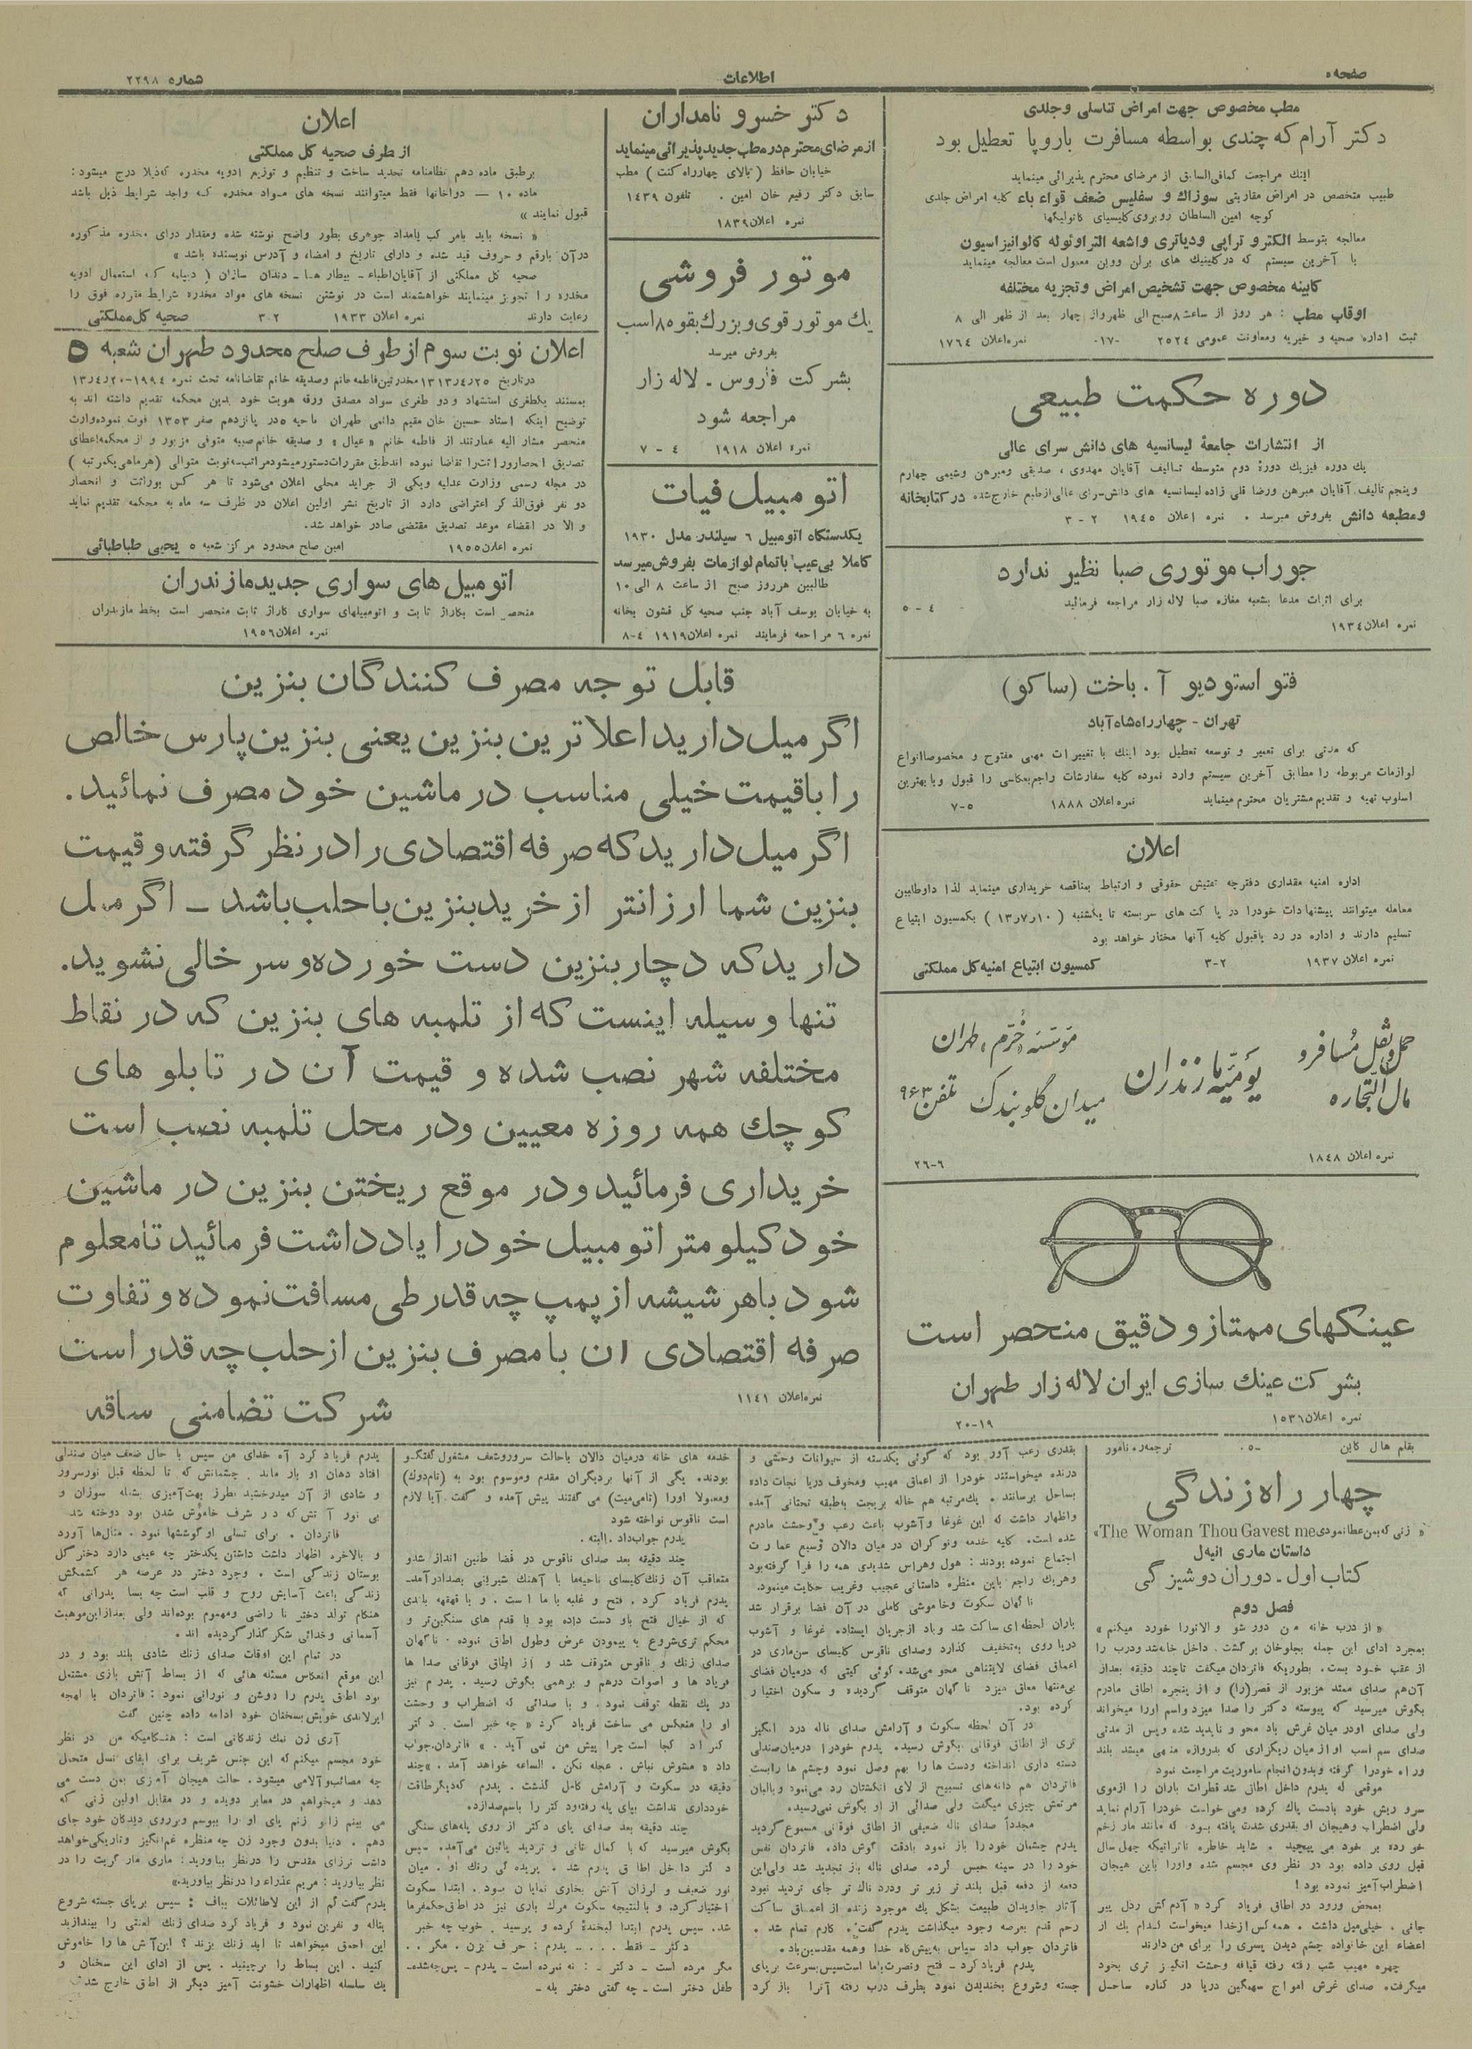 صفحه ۵
اطلاعات
شماره ۲۲۹۸
مطب مخصوص جهت امراض تناسلی و جلدی
دکتر آرام که چندی بواسطه مسافرت باروپا تعطیل بود
اینك مراجعت کمافی‌السابق از مرضای محترم پذیرائی مینماید
طبیب متخصص در امراض مقاربتی سوزاك و سفلیس ضعف قواء باء کلیه امراض جلدی
کوچه امین السلطان روبروی کلیسیای کاتولیکها
معالجه بتوسط الکترو تراپی و دیاتری واشعه التراوئوله کالوانیزاسیون
با آخرین سیستم که درکلینیك های برلن ووین معمول است معالجه مینماید
کابینه مخصوص جهت تشخیص امراض و تجزیه مختلفه
اوقات مطب : هر روز از ساعت ۸صبح الی ظهر واز چهار بعد از ظهر الی ۸
ثبت اداره صحیه و خیریه ومعاونت عمومی ۲۵۲۴ -۱۷۰ نمره اعلان ۱۷۶۴
دوره حکمت طبیعی
از انتشارات جامعهٔ لیسانسیه های دانش سرای عالی
یك دوره فیزیك دورهٔ دوم متوسطه تالیف آقایان مهدوی ، صدیقی ومبرهن وشیمی چهارم
وپنجم تالیف آقایان مبرهن ورضا قلی زاده لیسانسیه های دانش‌سرای عالی ازطبع خارج‌شده درکتابخانه
ومطبعه دانش بفروش میرسد . نمره اعلان ۱۹۴۵ ۲ - ۳
جوراب موتوری صبا نظیر ندارد
برای اثبات مدعا بشعبه مغازه صبا لاله زار مراجعه فرمائید
۴ - ۵
نمره اعلان ۱۹۳۴
فتو استودیو آ . باخت (ساکو)
تهران - چهارراه شاه‌آباد
که مدتی برای تعمیر و توسعه تعطیل بود اینك با تغییرات مهمی مفتوح و مخصوصاانواع
لوازمات مربوطه را مطابق آخرین سیستم وارد نموده کلیه سفارشات راجع‌بعکاسی را قبول وبابهترین
اسلوب تهیه و تقدیم مشتریان محترم مینماید نمره اعلان ۱۸۸۸ ۵-۷
اعلان
اداره امنیه مقداری دفترچه تفتیش حقوقی و ارتباط بمناقصه خریداری مینماید لذا داوطلبین
معامله میتوانند پیشنهادات خودرا در پاکت های سربسته تا یکشنبه ( ۱۰ر۷ر۱۳ ) بکمسیون ابتیاع
تسلیم دارند و اداره در رد یاقبول کلیه آنها مختار خواهد بود
نمره اعلان ۱۹۳۷ ۲-۳ کمسیون ابتیاع امنیه کل مملکتی
حمل و نقل مسافر و
مال التجاره
یومیه مازندران
موسسه «خرم» طهران
میدان گلوبندك تلفن ۹۶۳
نمره اعلان ۱۸۴۸ ۶-۲۶
عینکهای ممتاز و دقیق منحصر است
بشرکت عینك سازی ایران لاله زار طهران
نمره اعلان۱۵۳۶ ۱۹-۲۰
دکتر خسرو نامداران
ازمرضای محترم درمطب جدید پذیرائی مینماید
خیابان حافظ (بالای چهارراه کنت) مطب
سابق دکتر رفیع خان امین . تلفون ۱۴۳۹
نمره اعلان۱۸۳۹
موتور فروشی
یك موتور قوی وبزرك بقوه ۸۵ اسب
بفروش میرسد
بشرکت فاروس - لاله زار
مراجعه شود
نمره اعلان ۱۹۱۸ ۴ - ۷
اتومبیل فیات
یکدستگاه اتومبیل ۶ سیلندر مدل ۱۹۳۰
کاملا بی‌عیب باتمام لوازمات بفروش میرسد
طالبین هرروز صبح از ساعت ۸ الی ۱۰
به خیابان یوسف آباد جنب صحیه کل قشون بخانه
نمره ۶ مراجعه فرمایند نمره اعلان۱۹۱۹ ۴-۸
اعلان
از طرف صحیه کل مملکتی
برطبق ماده دهم نظامنامه تحدید ساخت و تنظیم و توزیع ادویه مخدره که‌ذیلا درج میشود :
ماده ۱۰ — دواخانها فقط میتوانند نسخه های مواد مخدره که واجد شرایط ذیل باشد
قبول نمایند »
« نسخه باید بامر کب یامداد جوهری بطور واضح نوشته شده ومقدار دوای مخدره مذکوره
درآن بارقم و حروف قید شده و دارای تاریخ و امضاء و آدرس نویسنده باشد »
صحیه کل مملکتی از آقایان‌اطباء - بیطارها - دندان سازان ( دیپلمه که استعمال ادویه
مخدره را تجویز مینمایند خواهشمند است در نوشتن نسخه های مواد مخدره شرایط مقرره فوق را
رعایت دارند نمره اعلان ۱۹۳۳ ۲-۳ صحیه کل مملکتی
اعلان نوبت سوم از طرف صلح محدود طهران شعبه ۵
درتاریخ ۲۵ر۴ر۱۳۱۳مخدرتین‌فاطمه خانم وصدیقه خانم تقاضانامه تحت نمره ۱۹۹۴-۲۰ر۴ر۱۳
بمستند یکطغری استشهاد ودو طغری سواد مصدق ورقه هویت خود بدین محکمه تقدیم داشته اند به
توضیح اینکه استاد حسین خان مقیم دائمی طهران ناحیه ۵در پانزدهم صفر ۱۳۵۳ فوت نموده‌وارث
منحصر مشار الیه عبارتند از فاطمه خانم « عیال » و صدیقه خانم‌صبیه متوفی مزبور و از محکمه‌اعطای
تصدیق انحصاروراثت‌را تقاضا نموده اندطبق مقررات‌دستورمیشودمراتب‌سه‌نوبت متوالی (هرماهی‌یکمرتبه )
در مجله رسمی وزارت عدلیه ویکی از جراید محلی اعلان می‌شود تا هر کس بوراثت و انحصار
دو نفر فوق‌الذکر اعتراضی دارد از تاریخ نشر اولین اعلان در ظرف سه ماه به محکمه تقدیم نماید
و الا در انقضاء موعد تصدیق مقتضی صادر خواهد شد.
نمره اعلان۱۹۵۵ امین صلح محدود مرکز شعبه ۵ یحیی طباطبائی
اتومبیل های سواری جدید مازندران
منحصر است بکاراژ ثابت و اتومبیلهای سواری کاراژ ثابت منحصر است بخط مازندران
نمره اعلان۱۹۵۶
قابل توجه مصرف کنندگان بنزین
اگر میل دارید اعلا ترین بنزین یعنی بنزین پارس خالص
را باقیمت خیلی مناسب در ماشین خود مصرف نمائید .
اگر میل دارید که صرفه اقتصادی را در نظر گرفته وقیمت
بنزین شما ارزانتر از خرید بنزین باحلب باشد - اگر میل
دارید که دچار بنزین دست خورده و سر خالی نشوید.
تنها وسیله اینست که از تلمبه های بنزین که در نقاط
مختلفه شهر نصب شده و قیمت آن در تابلو های
کوچك همه روزه معیین ودر محل تلمبه نصب است
خریداری فرمائید و در موقع ریختن بنزین در ماشین
خود کیلومتر اتومبیل خود را یادداشت فرمائید تا معلوم
شود باهر شیشه از پمپ چه قدر طی مسافت نموده و تفاوت
صرفه اقتصادی ان با مصرف بنزین از حلب چه قدر است
نمره اعلان ۱۱۴۱
شرکت تضامنی ساقه
بقلم هال کاین -۵- ترجمه ه نامور
چهار راه زندگی
« زنی که بمن عطا نمودی The Woman Thou Gavest me»
داستان ماری انیل
کتاب اول - دوران دوشیزگی
فصل دوم
« از درب خانه من دور شو و الانورا خورد میکنم »
بمجرد ادای این جمله بجلوخان برگشت. داخل خانه‌شد ودرب را
از عقب خود بست. بطوریکه فاتردان میگفت تاچند دقیقه بعداز
آن‌هم صدای ممتد مزبور از قصر(را) و از پنجره اطاق مادرم
بگوش میرسید که پیوسته دکتر را صدا میزد واسم اورا میخواند
ولی صدای اودر میان غرش باد محو و ناپدید شده وپس از مدتی
صدای سم اسب او از میان ریگزاری که بدروازه منتهی میشد بلند
وراه خودرا گرفته وبدون انجام ماموریت مراجعت نمود
موقعی که پدرم داخل اطاق شد قطرات باران را ازموی
سرو ریش خود بادست پاك کرده ومی خواست خودرا آرام نماید
ولی اضطراب وهیجان او بقدری شدت یافته بود که مانند مار زخم
خورده بر خود می پیچید . شاید خاطره ناثراتیکه چهل سال
قبل روی داده بود در نظر وی مجسم شده واورا باین هیجان
اضطراب‌آمیز نموده بود !
بمحض ورود در اطاق فریاد کرد « آدم کش رذل پیر
جانی . خیلی‌میل داشت . همه‌کس ازخدا میخواست کدام یك از
اعضاء این خانواده چشم دیدن پسری را برای من دارند
چهره مهیب شب رفته رفته قیافه وحشت انگیز تری بخود
میگرفت. صدای غرش امواج سهمگین دریا در کناره ساحل
بقدری رعب آور بود که گوئی یکدسته از حیوانات وحشی و
درنده میخواستند خودرا از اعماق مهیب ومخوف دریا نجات داده
بساحل برسانند . یك‌مرتبه هم خاله بریجت به‌طبقه تحتانی آمده
واظهار داشت که این غوغا وآشوب باعث رعب و وحشت مادرم
شده است. کلیه خدمه ونوکران در میان دالان وسیع عمارت
اجتماع نموده بودند : هول وهراس شدیدی همه را فرا گرفته‌بود
وهریك راجع باین منظره داستانی عجیب وغریب حکایت مینمود.
ناگهان سکوت وخاموشی کاملی در آن فضا برقرار شد
باران لحظه‌ای ساکت شد وباد ازجریان ایستاد. غوغا و آشوب
دریا روی به‌تخفیف گذارد وصدای ناقوس کلیسای سن‌ماری در
اعماق فضای لایتناهی محو می‌شد. گوئی گیتی که درمیان فضای
بی‌منتها معلق میزد ناگهان متوقف گردیده و سکون اختیار
کرده بود.
در آن لحظه سکوت و آرامش صدای ناله درد انگیز
تری از اطاق فوقانی بگوش رسید. پدرم خودرا درمیان‌صندلی
دسته داری انداخته ودست ها را بهم وصل نمود وچشم ها رابست
فاتردان هم دانه‌های تسبیح از لای انگشتان رد می‌نمود وبالبان
مرتعش چیزی میگفت ولی صدائی از او بگوش نمی‌رسید.
مجدداً صدای ناله ضعیفی از اطاق فوقانی مسموع گردید
پدرم چشمان خود را باز نمود بادقت گوش داد. فاتردان نفس
خود را در سینه حبس کرد. صدای ناله باز تجدید شد ولی‌این
دفعه از دفعه قبل بلند تر زیر تر ودرد ناك تر جای تردید نبود
آثار جاویدان طبیعت بشکل یك موجود زنده از اعماق ساکت
رحم قدم بعرصه وجود میگذاشت پدرم گفت : کارم تمام شد .
فاتردان جواب داد سپاس به‌پیش‌گاه خدا وهمه مقدسین‌باد.
پدرم فریاد کرد - فتح و نصرت باما است سپس بسرعت برپای
جسته وشروع بخندیدن نمود بطرف درب رفته آنرا باز کرد
خدمه های خانه درمیان دالان باحالت سرور وشعف مشغول گفتگو
بودند. یکی از آنها بردیگران مقدم وموسوم بود به (تام‌دوك)
ومعمولا اورا (تامی‌میت) می گفتند پیش آمده و گفت آیا لازم
است ناقوس نواخته شود
پدرم جواب‌داد . البته .
چند دقیقه بعد صدای ناقوس در فضا طنین انداز شدو
متعاقب آن زنك‌کلیسای ناحیه‌ما با آهنك شیرینی بصدادرآمد-
پدرم فریاد کرد . فتح و غلبه با ما است . و با قهقهه بلندی
که از خیال فتح باو دست داده بود با قدم های سنگین‌تر و
محکم تری‌شروع به پیمودن عرض وطول اطاق نموده . ناگهان
صدای زنك و ناقوس متوقف شد و از اطاق فوقانی صدا ها
فریاد ها و اصوات درهم و برهمی بگوش رسید . پدرم نیز
در یك نقطه توقف نمود . و با صدائی که اضطراب و وحشت
او را منعکس می ساخت فریاد کرد « چه خبر است . دکتر
کنراد کجا است چرا پیش من نمی آید . » فاتردان‌جواب
داد « مشوش نباش . عجله نکن . الساعه خواهد آمد . »چند
دقیقه در سکوت و آرامش کامل گذشت . پدرم که‌دیگرطاقت
خودداری نداشت بپای پله رفته‌ود کتر را باسم‌صدازد.
چند دقیقه بعد صدای پای دکتر از روی پله‌های سنگی
بگوش میرسید که با کمال تانی و تردید پائین می‌آمد. سپس
دکتر داخل اطاق پدرم شد . پریده گی رنك او . میان
نور ضعیف و لرزان آتش بخاری نمایان بود . ابتدا سکوت
اختیار کرد. و بالنتیجه سکوت مرك باری نیز در اطاق حکمفرما
شد. سپس پدرم ابتدا لبخندی کرده و پرسید . خوب چه خبر
دکتر - فقط . . . . - پدرم : حرف بزن . مگر . .
مگر مرده است - دکتر - : نه نمرده است - پدرم - پس‌چه‌شده-
طفل دختر است - چه گفتی دختر بله -
پدرم فریاد کرد آه خدای من سپس با حال ضعف میان صندلی
افتاد دهان او باز ماند . چشمانش که تا لحظه قبل نورسرور
و شادی از آن میدرخشید بطرز بهت‌آمیزی بشعله سوزان و
بی نور آتش که در شرف خاموش شدن بود دوخته شد.
فاتردان . برای تسلی او گوششها نمود . مثال‌ها آورد
و بالاخره اظهار داشت داشتن یکدختر چه عیبی دارد دخترگل
بوستان زندگی است . وجود دختر در عرصه هر کشمکش
زندگی باعث آسایش روح و قلب است چه بسا پدرانی که
هنگام تولد دختر نا راضی ومهموم بوده‌اند ولی بعدازاین‌موهبت
آسمانی وخدائی شکر گذارگردیده اند .
در تمام این اوقات صدای زنك شادی بلند بود و در
این موقع انعکس مشعله هائی که از بساط آتش بازی مشتعل
بود اطاق پدرم را روشن و نورانی نمود : فاتردان با لهجه
ایرلاندی خویش بسخنان خود ادامه داده چنین گفت
آری زن نمك زندگانی است : هنگامیکه من در نظر
خود مجسم میکنم که این جنس شریف برای ابقای نسل متحمل
چه مصائب‌وآلامی میشود. حالت هیجان آمزی بمن دست می
دهد و میخواهم در معابر دویده و در مقابل اولین زنی که
می بینم زانو زنم پای او را ببوسم وبرروی دیدگان خود جای
دهم . دنیا بدون وجود زن چه منظره غم‌انگیز وتاریکی‌خواهد
داشت ترزای مقدس را درنظر بیاورید : ماری مار گریت را در
نظر بیاورید : مریم عذراء را درنظر بیاورید.
پدرم‌گفت گم از این لاطائلات بباف : سپس برپای جسته شروع
بناله و نفرین نمود و فریاد کرد صدای زنك لعنتی را بیندازید
این احمق میخواهد تا ابد زنك بزند ؟ این‌آتش ها را خاموش
کنید . این بساط را برچینید. پس از ادای این سخنان و
یك سلسله اظهارات خشونت آمیز دیگر از اطاق خارج شد